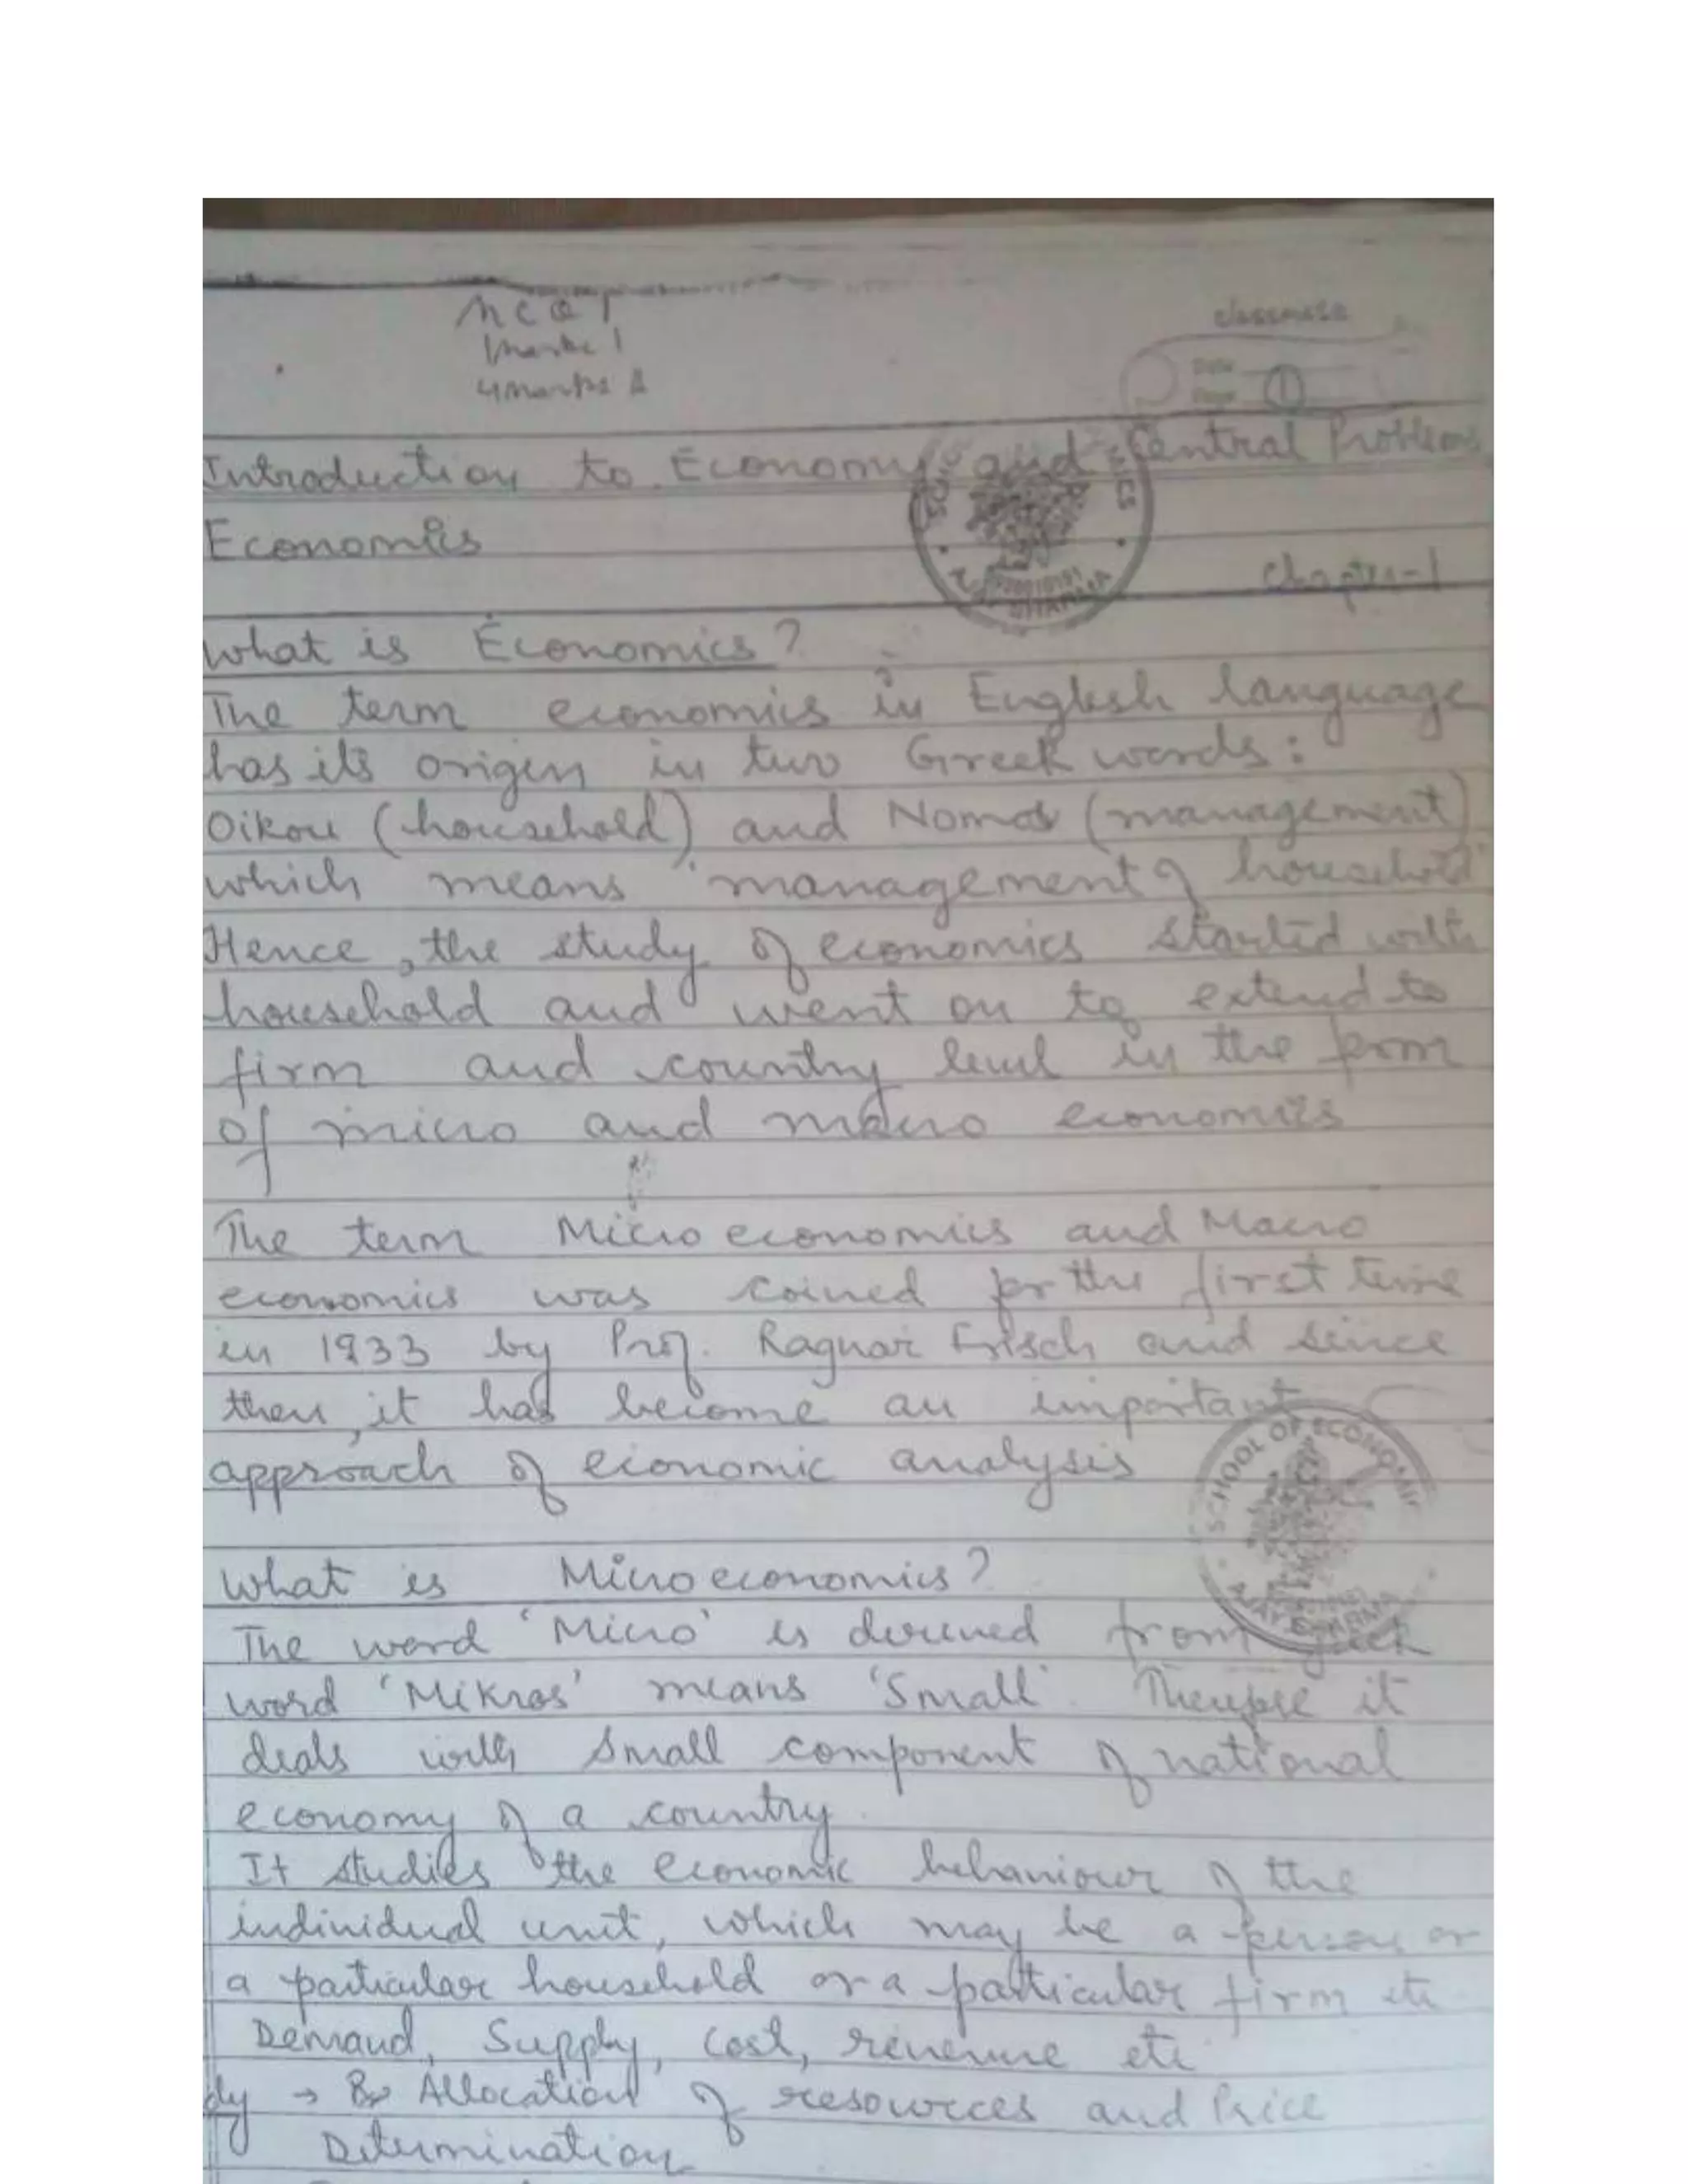 classmate
Date
Page 1
Introduction to Economy and Central Problems
Economics
Chapter-1
What is Economics?
The term economics in English language
has its origin in two Greek words:
Oikou (household) and Nomos (management)
which means 'management of household'
Hence, the study of economics started with
household and went on to extend to
firm and country level in the form
of micro and macro economics
The term Micro economics and Macro
economics was coined for the first time
in 1933 by Prof. Ragnar Frisch and since
then, it has become an important
approach of economic analysis
SCHOOL OF ECONOMICS
AJAY SHARMA
What is Micro economics?
The word 'Micro' is derived from greek
word 'Mikros' means 'Small'. Therefore it
deals with small component of national
economy of a country.
It studies the economic behaviour of the
individual unit, which may be a person or
a particular household or a particular firm etc
Demand, Supply, Cost, revenue etc
dy → Allocation of resources and Price
Determination